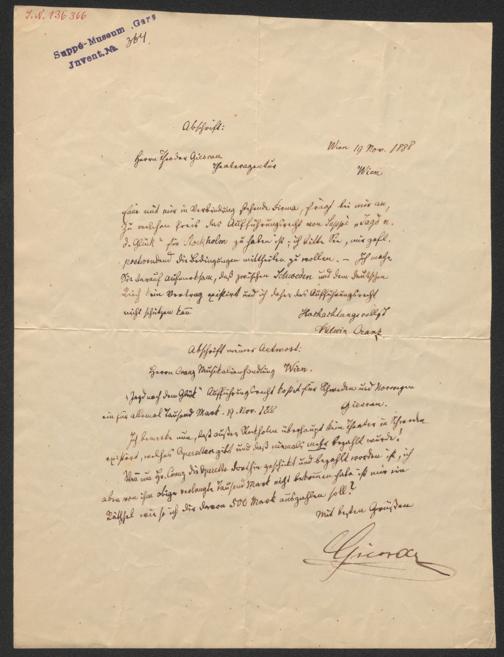 I.N. 136366
Suppé-Museum, Gars
Invent. No 364.
Abschrift:
Wien 19 Nov. 1888
Herrn Theodor Giesrau
Theateragentur
Wien
Eine mit mir in Verbindung stehende Firma, frägt bei mir an,
zu welchem Preis das Aufführungsrecht von Suppé "Jagd n.
d. Glück" für Stockholm zu haben ist; ich bitte Sie, mir gefl.
postwendend die Bedingungen mittheilen zu wollen. – Ich mache
Sie darauf aufmerksam, daß zwischen Schweden und dem deutschen
Reich kein Vertrag existirt und ich daher das Aufführungsrecht
nicht schützen kann
Hochachtungsvollst
Alwin Cranz
Abschrift meiner Antwort:
Herrn Cranz Musikalienhandlung Wien.
"Jagd nach dem Glück" Aufführungsrecht kostet für Schweden und Norwegen
ein für allemal Tausend Mark. 19. Nov. 1888
Giesrau.
Ich bemerke nun, daß außer Stockholm überhaupt kein Theater in Schweden
existirt, welches Operetten gibt und daß niemals mehr bezahlt wurde.
Wenn nun Hr. Cranz die Operette dorthin geschickt und bezahlt worden ist, ich
aber von ihm obige verlangte Tausend Mark nicht bekommen habe ist mir ein
Räthsel wie so ich die davon 500 Mark auszahlen soll?
Mit besten Grüßen